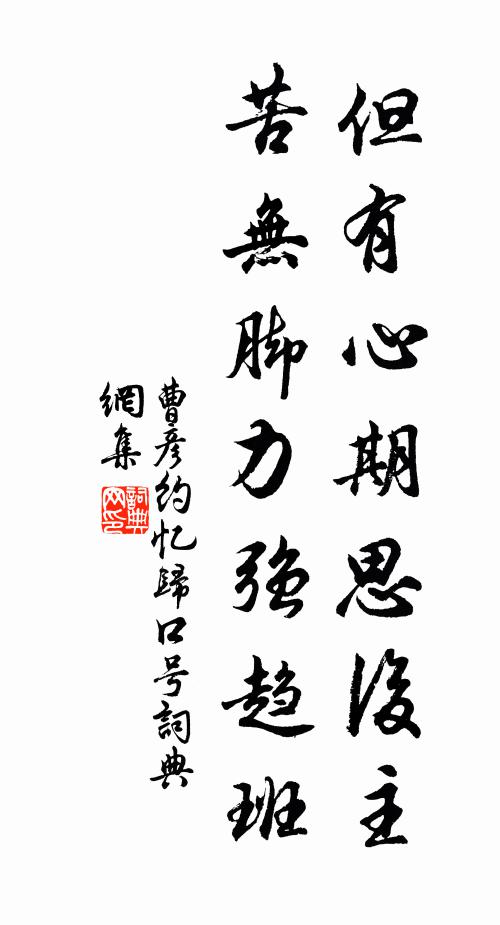 但有心期思後主
苦無脚力強趋班
曹彦約忆歸口号詞典
網集
詞典
网印